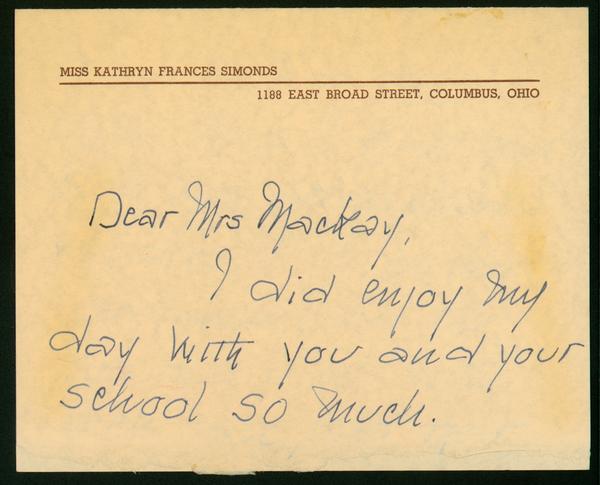 MISS KATHRYN FRANCES SIMONDS
1188 EAST BROAD STREET, COLUMBUS, OHIO
Dear Mrs Mackay,
I did enjoy my
day with you and your
school so much.